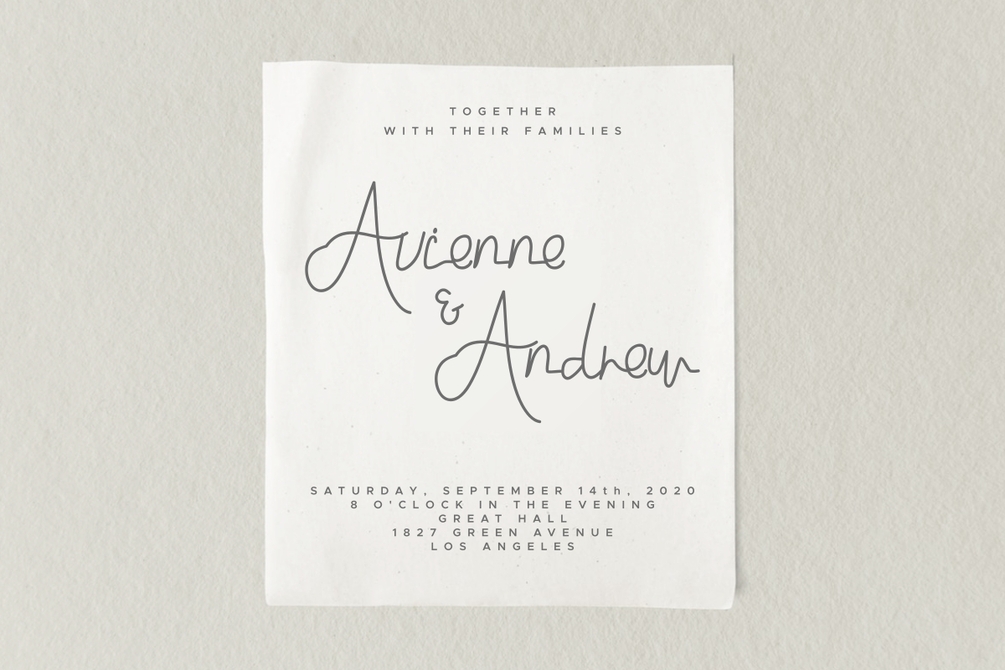 TOGETHER
WITH THEIR FAMILIES
Avienne
&
Andrew
SATURDAY, SEPTEMBER 14th, 2020
8 O'CLOCK IN THE EVENING
GREAT HALL
1827 GREEN AVENUE
LOS ANGELES